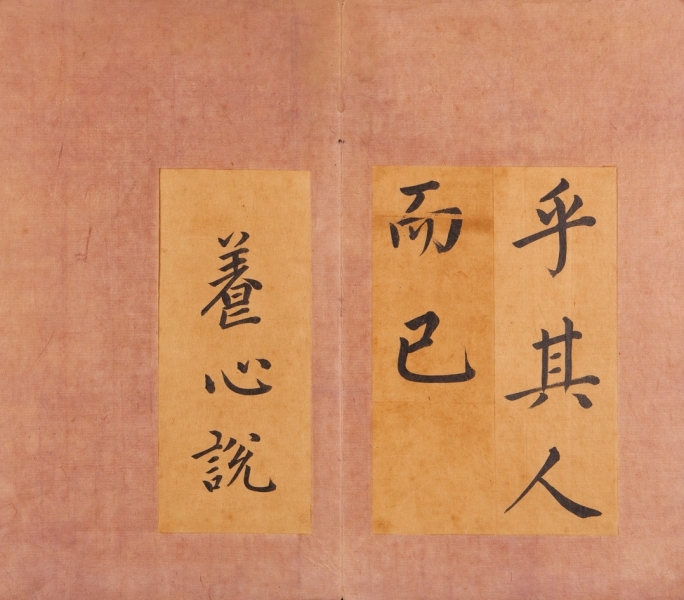 乎其人
而已
養心說